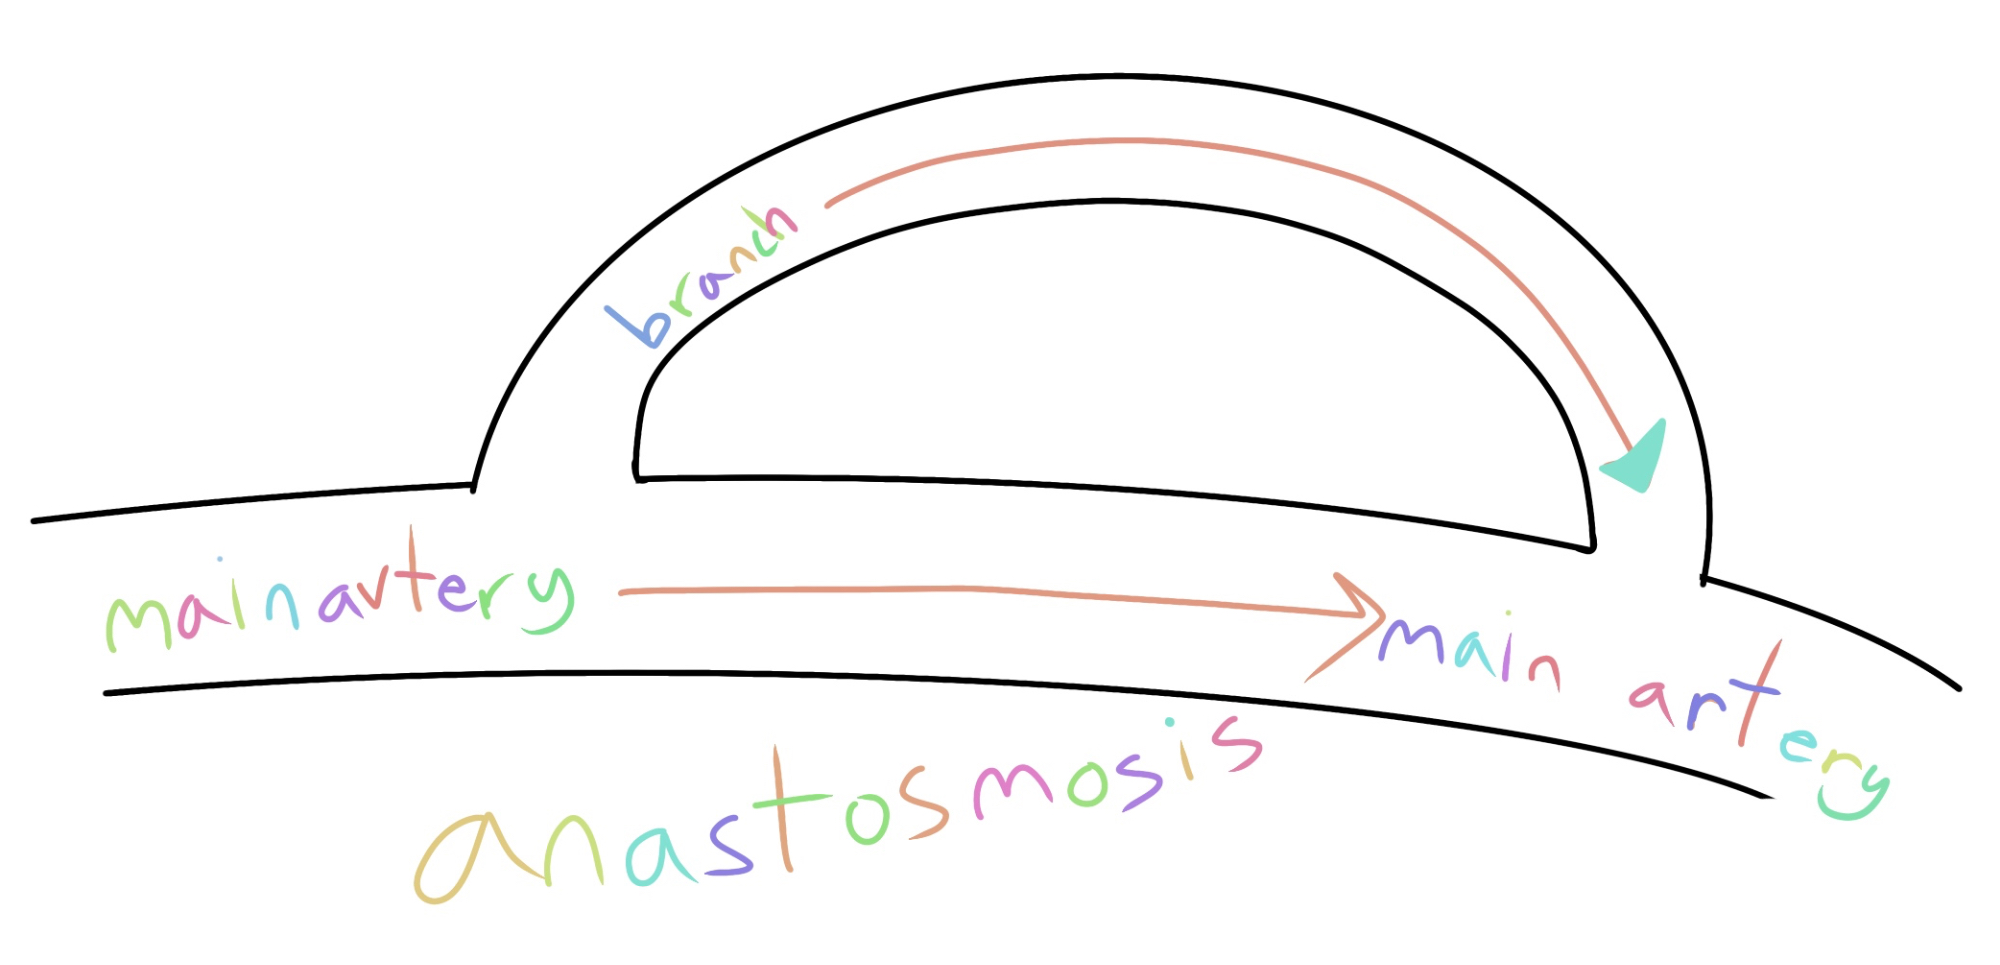 branch
main artery
main artery
anastosmosis